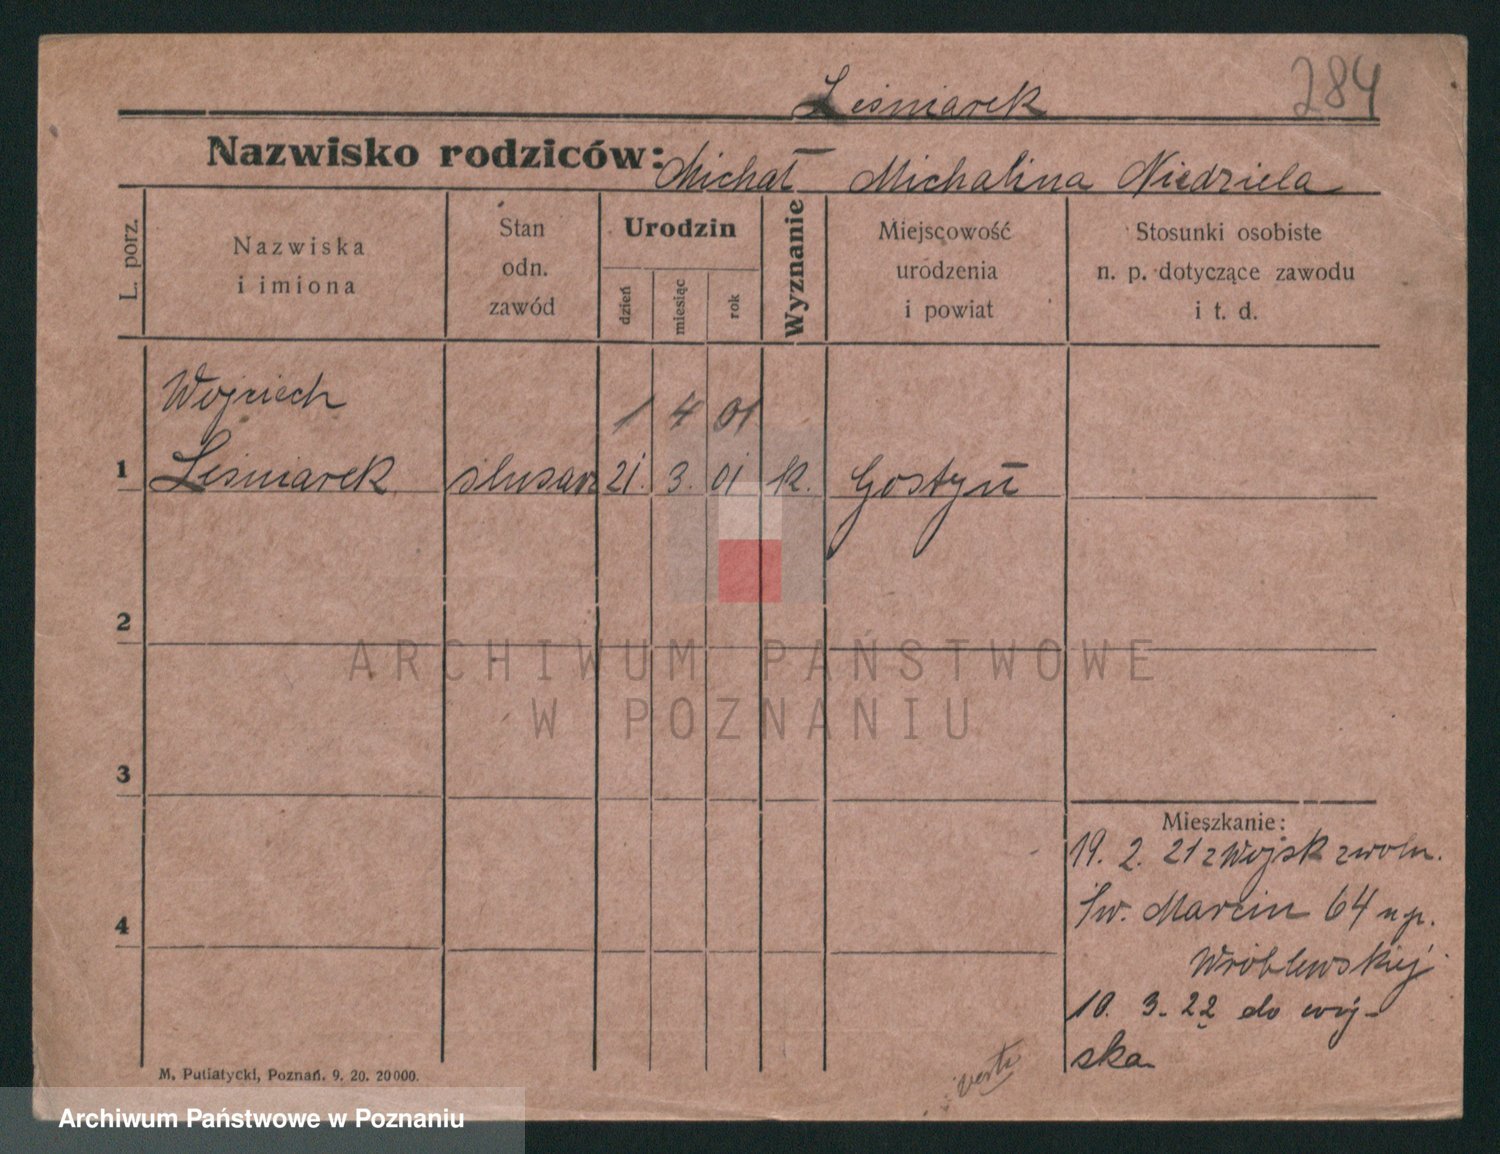 284
Leśniarek
Nazwisko rodziców: Michał Michalina Niedziela
L. porz.
Nazwiska
i imiona
Stan
odn.
zawód
Urodzin
dzień
miesiąc
rok
Wyznanie
Miejscowość
urodzenia
i powiat
Stosunki osobiste
n. p. dotyczące zawodu
i t. d.
Wojciech
1 4 01
1 Leśniarek ślusarz 21. 3. 01 k. Gostyń
2
3
4
Mieszkanie:
19. 2. 21 z Wojsk zwoln.
Św. Marcin 64 u p.
Wróblewskiej
10. 3. 22 do woj-
ska
M. Putiatycki, Poznań. 9. 20. 20000.
ARCHIWUM PAŃSTWOWE
W POZNANIU
Archiwum Państwowe w Poznaniu